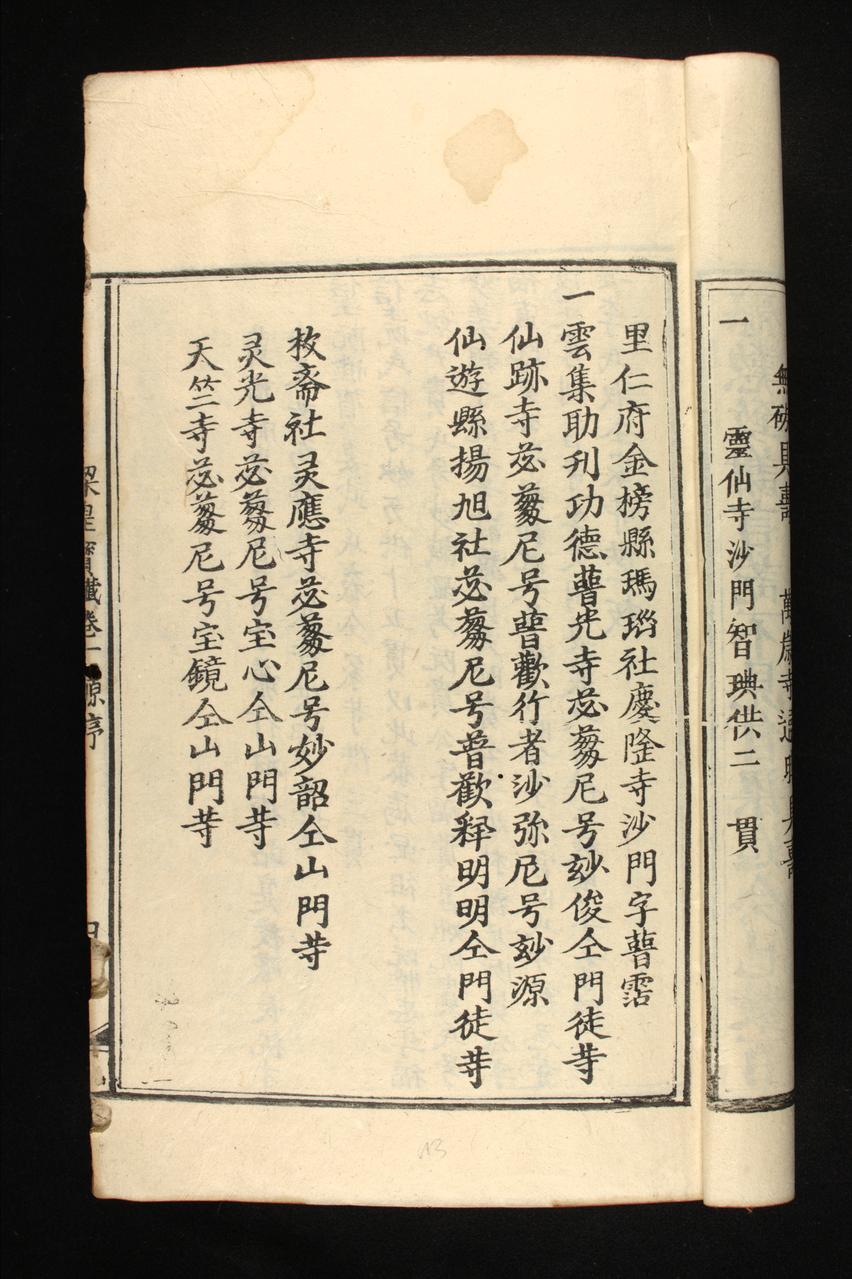 無破具壽 萬歲寺
一 靈仙寺沙門智琠供三貫
里仁府金榜縣瑪瑙社慶隆寺沙門字普霑
一雲集助刋功德普光寺苾蒭尼号玅俊仝門徒䓁
仙跡寺苾蒭尼号普歡行者沙弥尼号玅源
仙遊縣揚旭社苾蒭尼号普歡释明明仝門徒䓁
枚斋社灵應寺苾蒭尼号妙韶仝山門䓁
灵光寺苾蒭尼号宝心仝山門䓁
天竺寺苾蒭尼号宝鏡仝山門䓁
梁皇寶懺卷一 源序